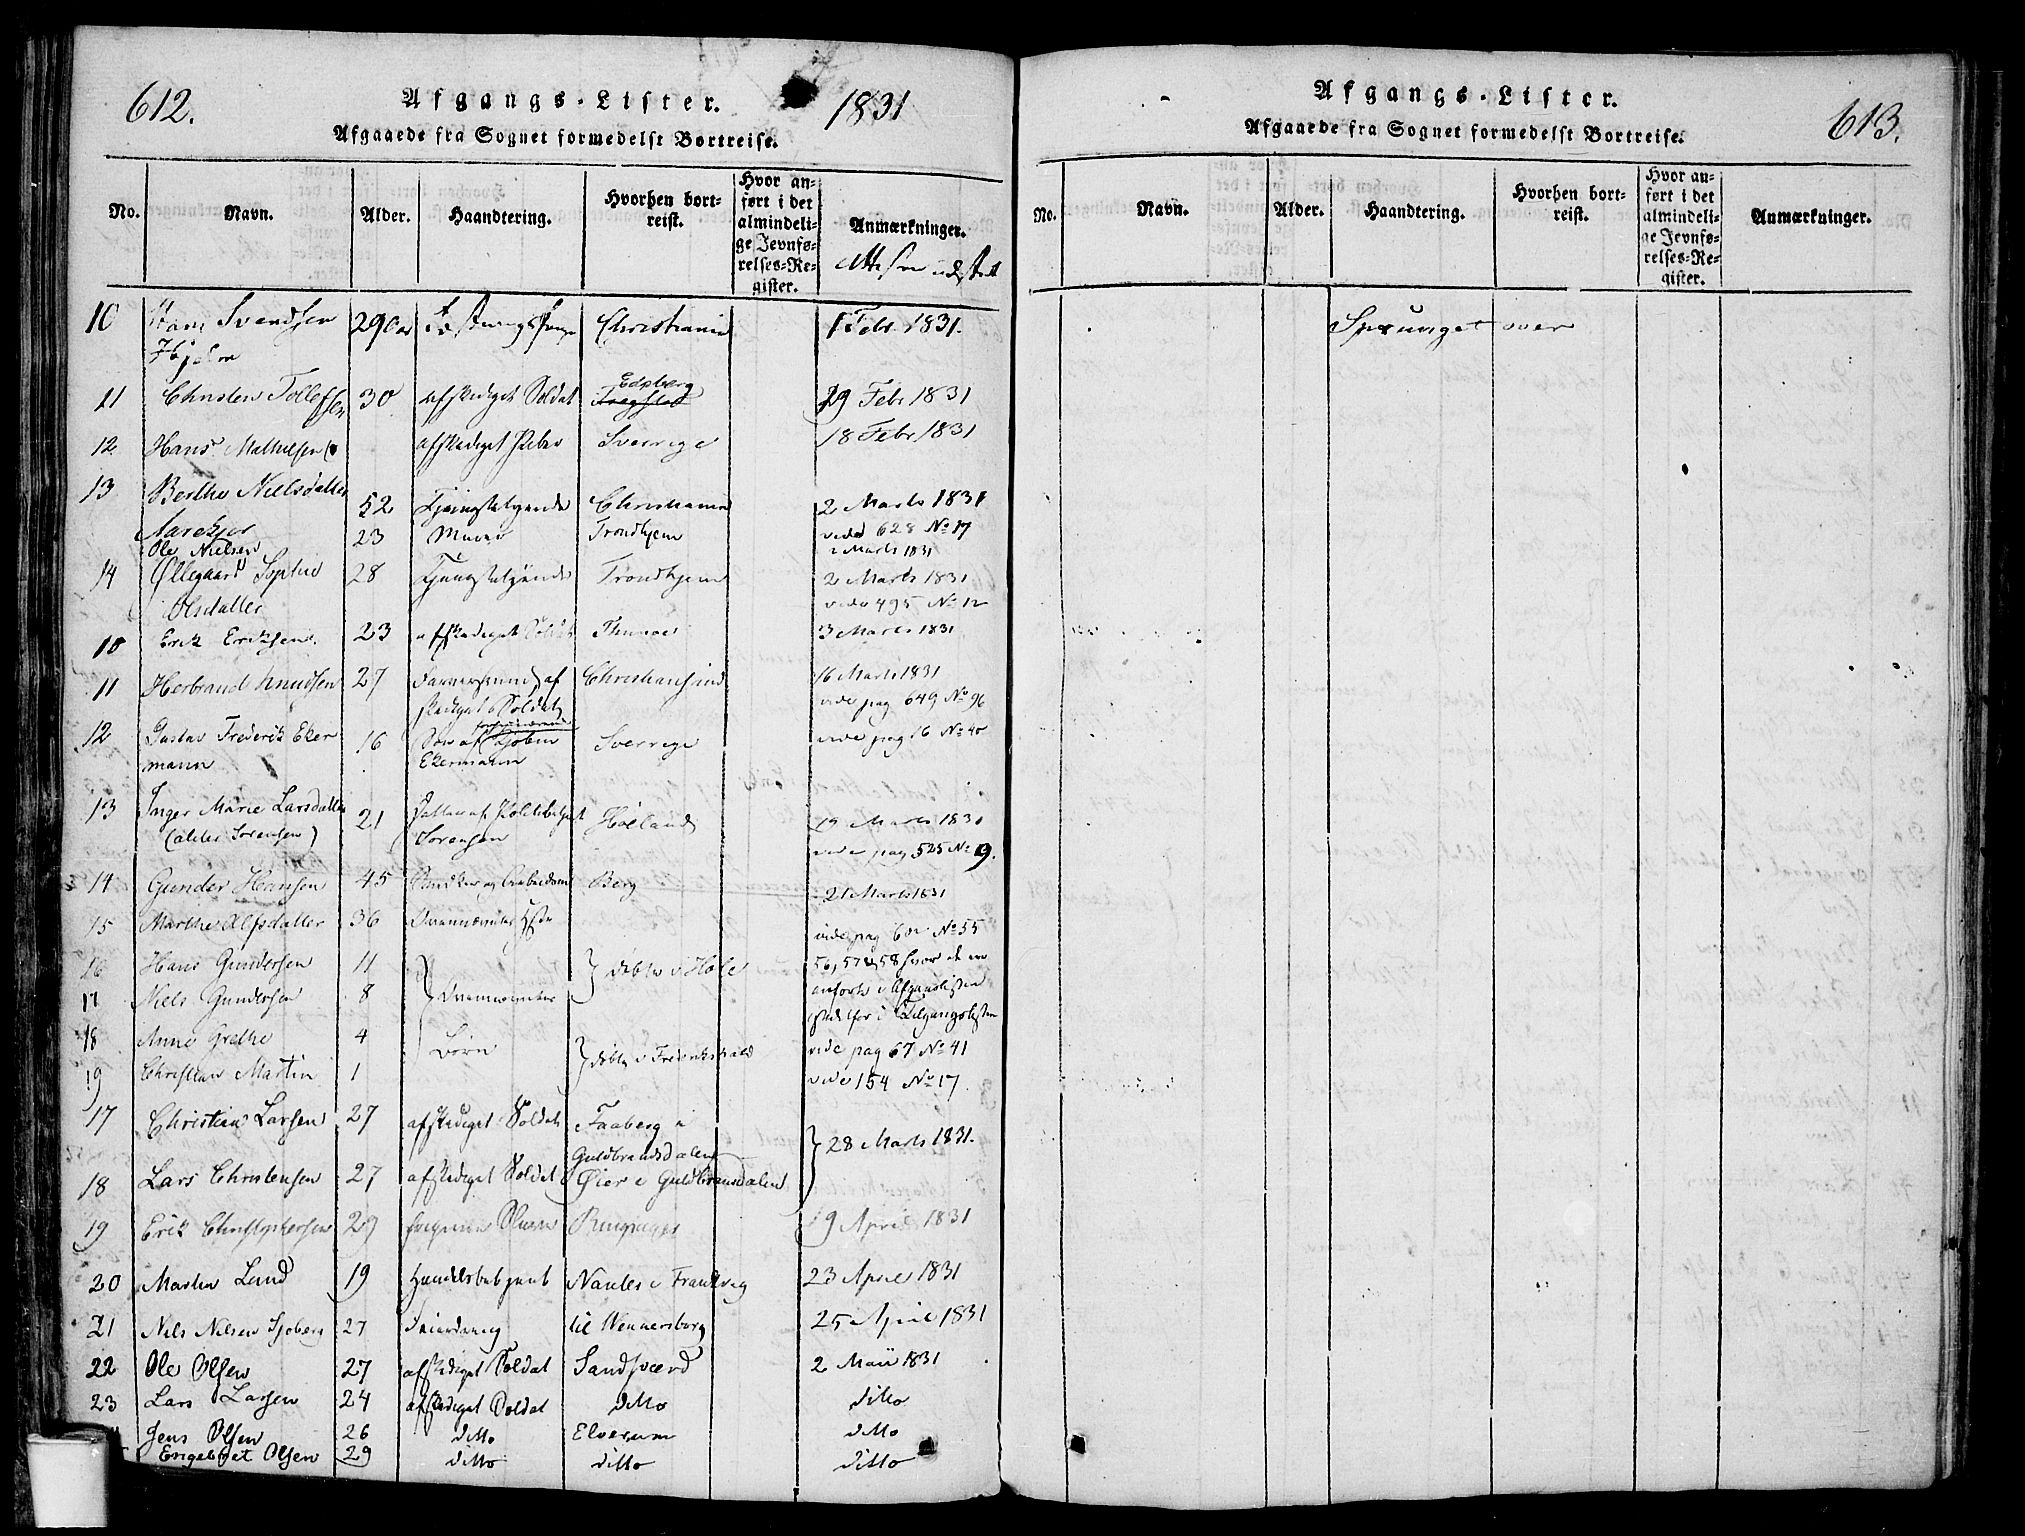 612.
Afgangs-Lister.
1831
Afgaaede fra Sognet formedelst Bortreise.
No. Navn. Alder. Haandtering. Hvorhen bortreist. Hvor anført i det almindelige Jevnførelses-Register. Anmærkninger.
10 Hans Svendsen 29 Christiania 1 Febr 1831.
11 Christen Tollefsen 30 afskediget Soldat Edsberg 29 Febr 1831
12 Hans Mathiesen afskediget Sverrige 18 Febr 1831
13 Berthe Nielsdatter 52 Christiania 2 Marts 1831
Ole Nielsen 23 Trondhjem vide 628 No 17
2 Marts 1831
14 Øllegaard Sophie 28 Trondhjem 2 Marts 1831
Olsdatter vide 495 No 12
10 Erik Eriksen 23 afskediget Soldat 3 Marts 1831
11 Herbrand Knudsen 27 Christiansand 16 Marts 1831
Soldat vide pag 649 No 96
12 Gustav Frederik Eker 16 Søn af Sverrige vide pag 16 No 40
mann Ekermann
13 Inger Marie Larsdatter 21 Høland 19 Marts 1831
(alias Sørensen) Sørensen vide pag 525 No 9.
14 Gunder Hansen 45 Berg 21 Marts 1831
15 Marthe Alfsdatter 36 vide pag No 55
16 Hans Gundersen 11 døbte i 56, 57 & 58 hvor de ere
17 Niels Gundersen 8 anførte i Afgangslisten
18 Anne Grethe 4 istedetfor i Tilgangslisten
Børn døbte i Frederikshald vide pag 67 No 41
19 Christian Martin 1 vide 154 No 17.
17 Christian Larsen 27 afskediget Soldat Faaberg i
Guldbrandsdalen 28 Marts 1831.
18 Lars Christensen 27 afskediget Soldat Øier i Guldbransdalen
19 Erik Christophersen 29 Ringsager 19 April 1831
20 Lund 19 Handelsbetjent Nantes i Frankrig 23 April 1831
21 Nils Nilsen Sjøberg 27 til Wennersborg 25 April 1831
22 Ole Olsen 27 afskediget Soldat Sandsværd 2 Maii 1831
23 Lars Larsen 24 afskediget Soldat ditto ditto
Jens Olsen 26 ditto Elverum ditto
Engebret Olsen 29 ditto ditto ditto
Afgangs-Lister.
613.
Afgaaede fra Sognet formedelst Bortreise.
No. Navn. Alder. Haandtering. Hvorhen bortreist. Hvor anført i det almindelige Jevnførelses-Register. Anmærkninger.
Sprunget over